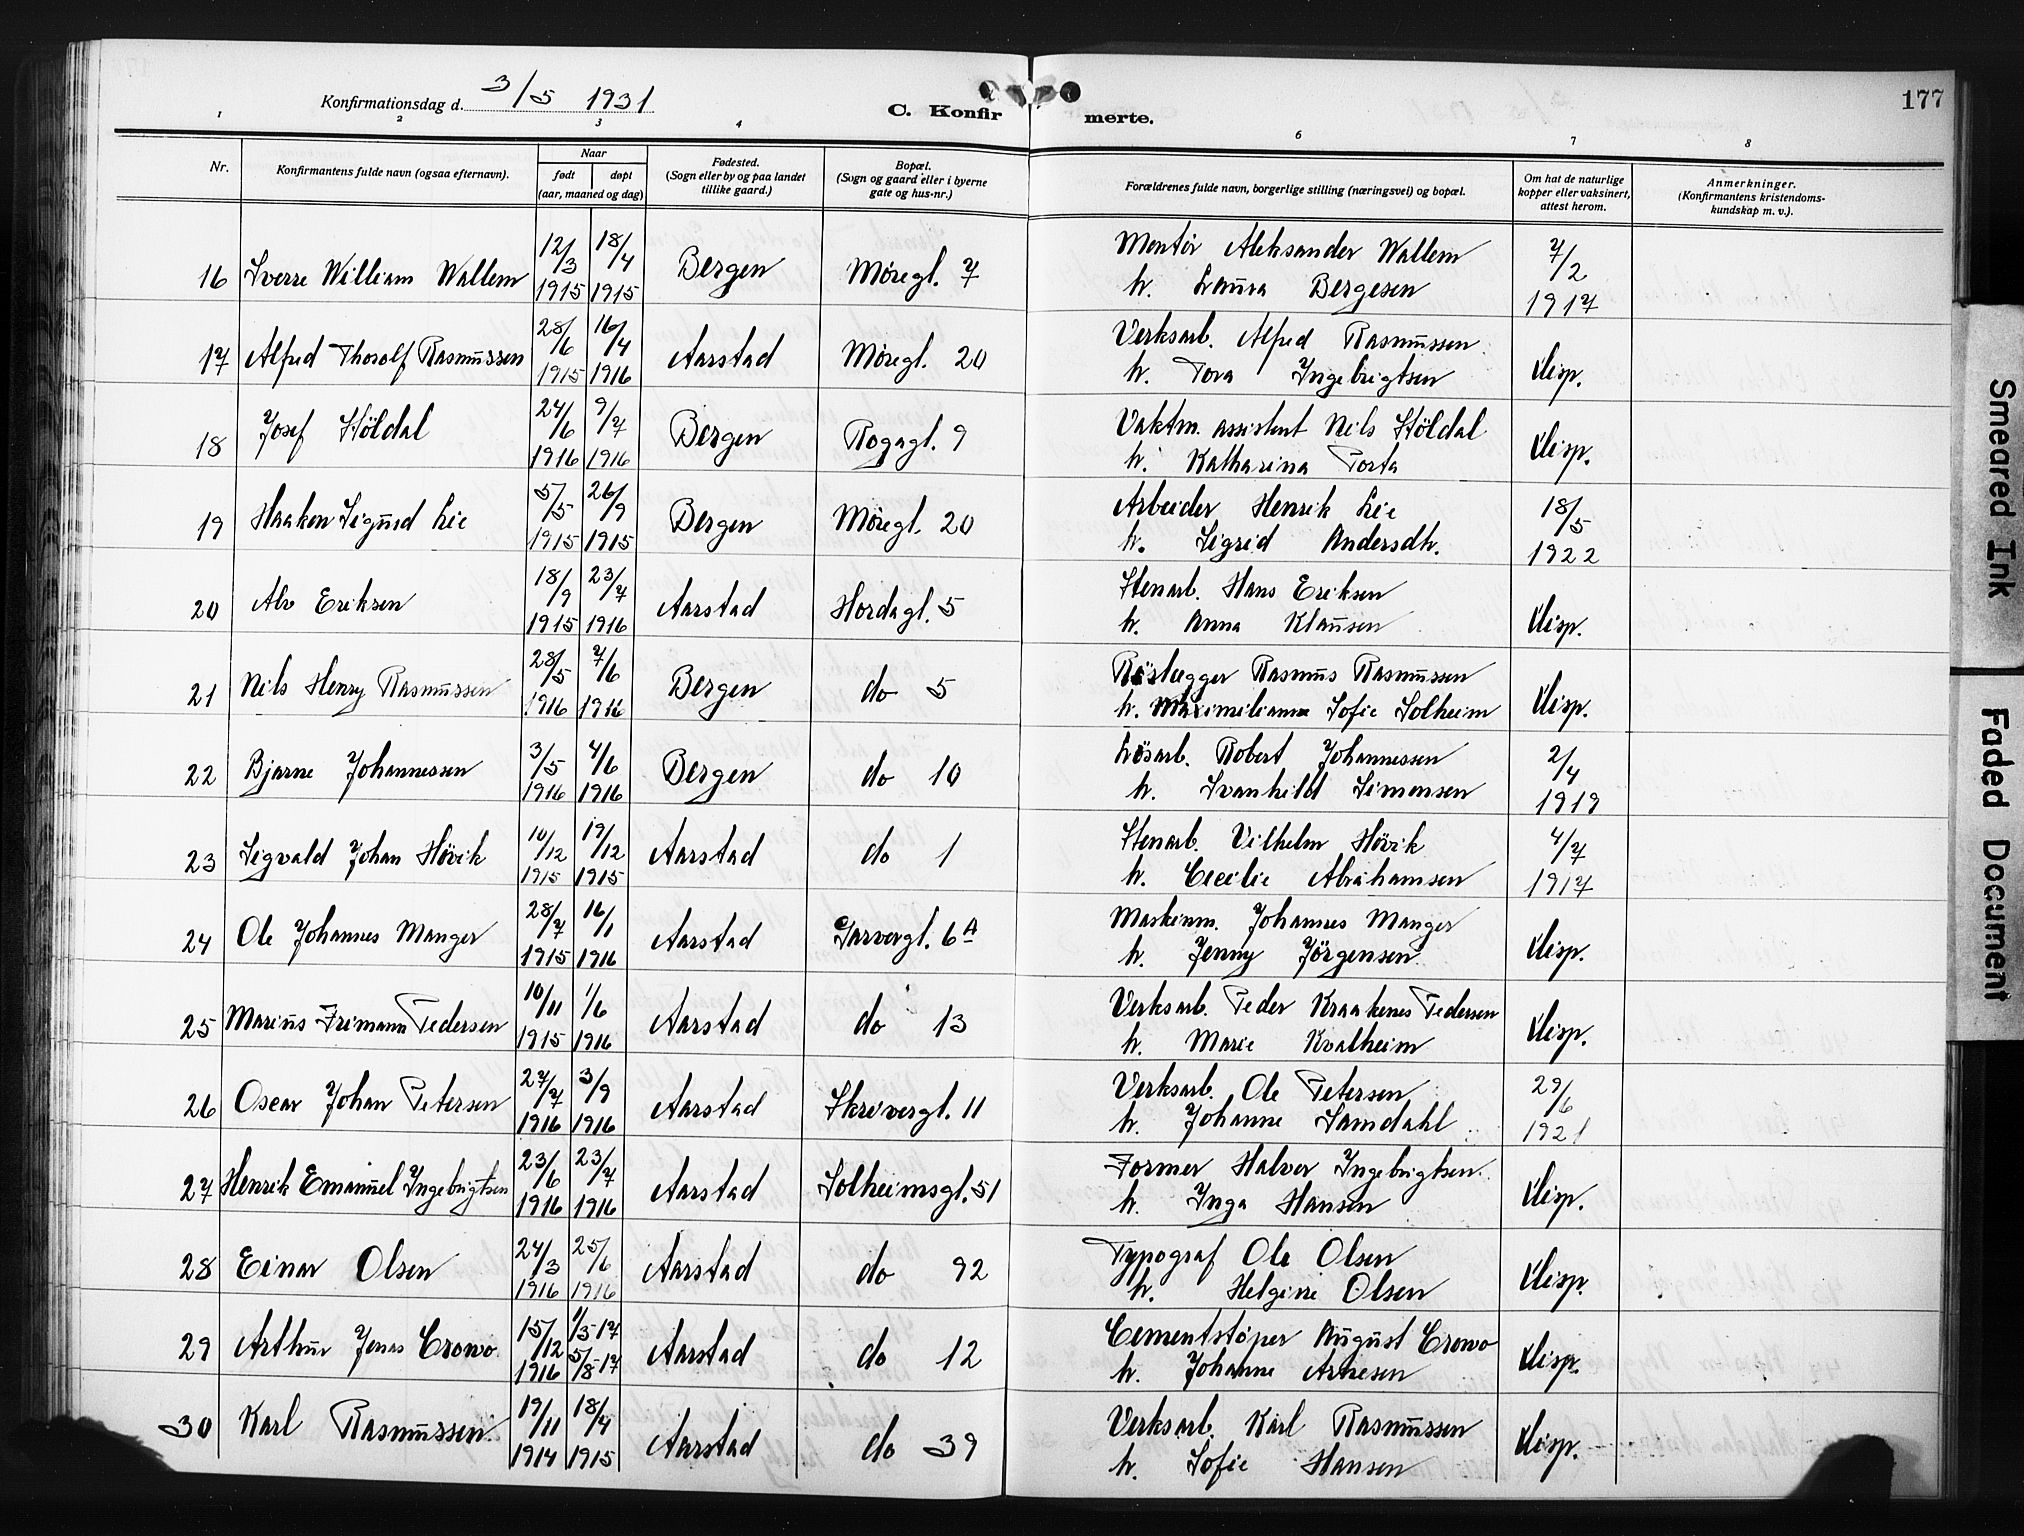 Konfirmationsdag d. 3/5 1931
C. Konfirmerte.
177
1 2 3 4 6 7 8
Nr.
Konfirmantens fulde navn (ogsaa efternavn).
Naar
født døpt
(aar, maaned og dag)
Fødested.
(Sogn eller by og paa landet
tillike gaard.)
Bopæl.
(Sogn og gaard eller i byerne
gate og hus-nr.)
Forældrenes fulde navn, borgerlige stilling (næringsvei) og bopæl.
Om hat de naturlige
kopper eller vaksinert,
attest herom.
Anmerkninger.
(Konfirmantens kristendoms-
kundskap m. v.).
16 Sverre William Wallem 12/3 1915 18/4 1915 Bergen Møregt. 7 Montør Aleksander Wallem 7/2
h. Laura Bergesen 1917
17 Alfred Thorolf Rasmussen 28/6 1915 16/4 1916 Aarstad Møregt. 20 Verksarb. Alfred Rasmussen
h. Tora Ingebrigtsen disp.
18 Josef Støldal 24/6 1916 9/7 1916 Bergen Rogagt. 9 Vaktm. assistent Nils Støldal
h. Katharina Torta disp.
19 Haakon Sigurd Lie 5/5 1915 26/9 1915 Bergen Møregt. 20 Arbeider Henrik Lie 18/5
h. Sigrid Andersdtr. 1922
20 Alv Eriksen 18/9 1915 23/7 1916 Aarstad Hordagt. 5 Stenarb. Hans Eriksen
h. Anna Klausen disp.
21 Nils Henry Rasmussen 28/5 1916 7/6 1916 Bergen do 5 Rørlægger Rasmus Rasmussen
h. Maximiliane Sofie Solheim disp.
22 Bjarne Johannessen 3/5 1916 4/6 1916 Bergen do 10 Løsarb. Robert Johannessen 2/4
h. Svanhild Simonsen 1919
23 Sigvald Johan Høvik 10/12 1915 19/12 1915 Aarstad do 1 Stenarb. Vilhelm Høvik 4/7
h. Cecilie Abrahamsen 1917
24 Ole Johannes Manger 28/7 1915 16/1 1916 Aarstad Garvergt. 6A Maskinm. Johannes Manger
h. Jenny Jörgensen disp.
25 Marius Frimann Pedersen 10/11 1915 1/6 1916 Aarstad do 13 Verksarb. Peder Kraakenes Pedersen
h. Marie Kvalheim disp.
26 Oscar Johan Petersen 27/7 1916 3/9 1916 Aarstad Skrivergt. 11 Verksarb. Ole Petersen 29/6
h. Johanne Samdahl 1921
27 Henrik Emanuel Ingebrigtsen 23/6 1916 23/7 1916 Aarstad Solheimsgt. 51 Former Halver Ingebrigtsen
h. Inga Hansen disp.
28 Einar Olsen 24/3 1916 25/6 1916 Aarstad do 92 Typograf Ole Olsen
h. Helgine Olsen disp.
29 Arthur Jonas Crowo 15/12 1916 1/3-17 5/8-17 Aarstad do 12 Cementstøper August Crowo
h. Johanne Arnesen disp.
30 Karl Rasmussen 19/11 1914 18/4 1915 Aarstad do 39 Verksarb. Karl Rasmussen
h. Sofie Hansen disp.
Smeared Ink
Faded Document